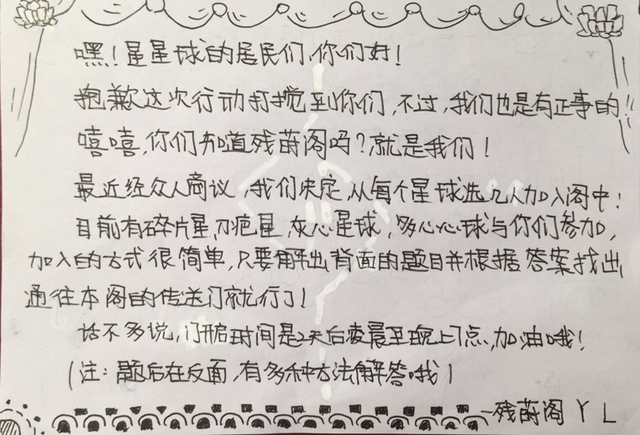 嘿！星星球的居民们，你们好！
抱歉这次行动打搅到你们，不过，我们也是有正事的！！
嘻嘻，你们知道残莳阁吗？就是我们！
最近经众人商议，我们决定，从每个星球选几人加入阁中！
目前有碎片星，刀疤星，灰心星球，多心心球与你们参加，
加入的方式很简单，只要解出背面的题目并根据答案找出
通往本阁的传送门就行了！
话不多说，门开启时间是2天后凌晨至晚上7点，加油哦！
（注：题后在反面，有多种方法解答哦）
—残莳阁 Y L